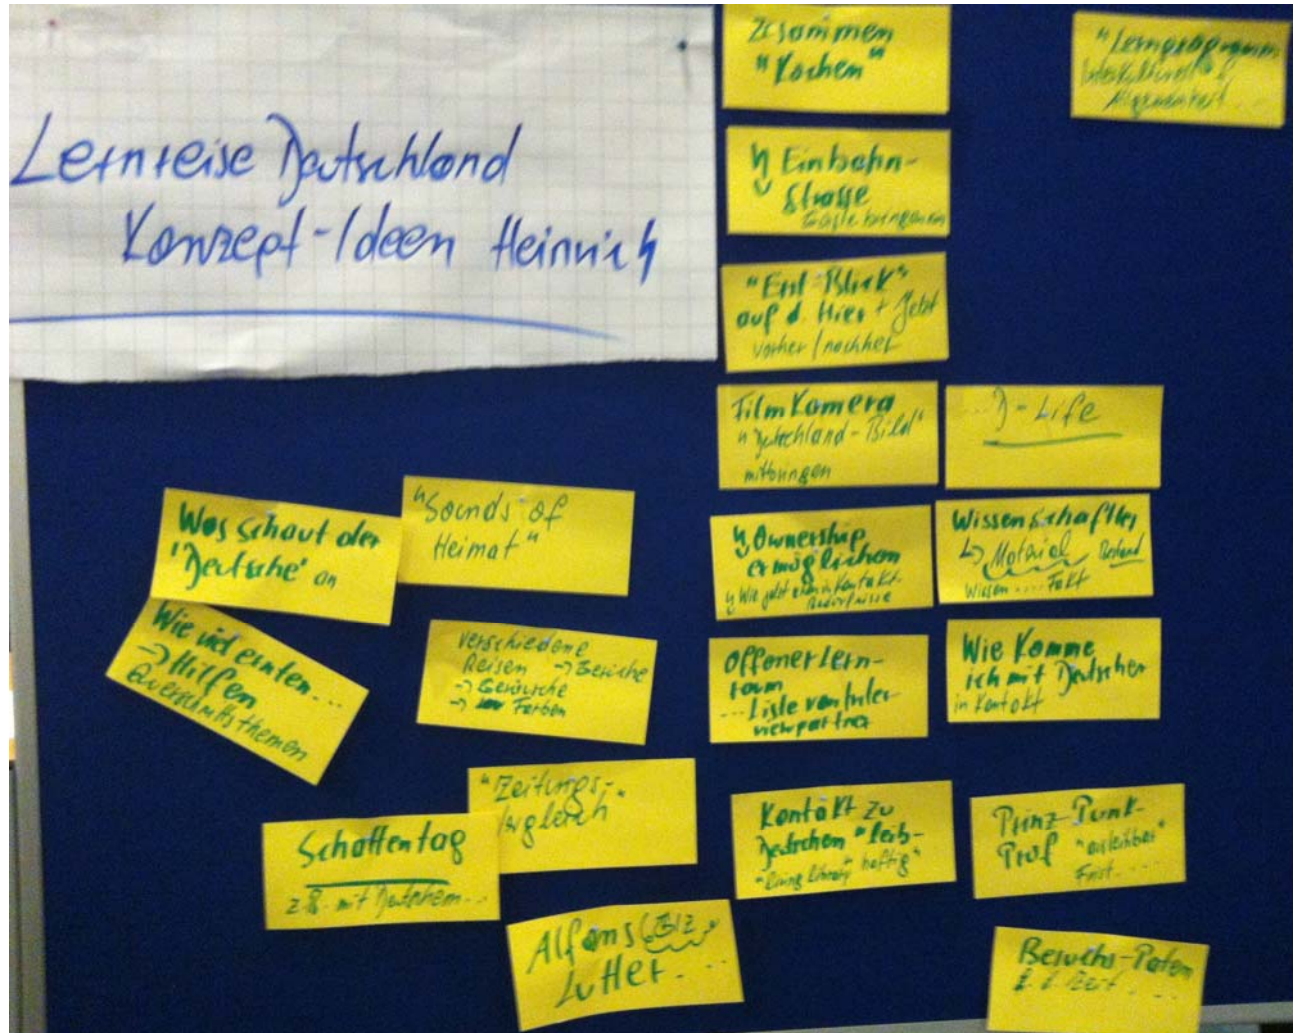 Lernreise Deutschland
Konzept-Ideen Heinrich
Zusammen
"Kochen"
"Lernprogramm
Interkulturell
Einbahn-
Strasse
"Ein Blick"
auf d. Hier + Jetzt
vorher / nachher
Filmkamera
"Deutschland-Bild"
mitbringen
D-Life
Was schaut der
'Deutsche' an
"Sounds of
Heimat"
Ownership
ermöglichen
Wissenschaftler
↳ Material
Wissen .... Fakt
Wie
→ Hilfen
Querschnittsthemen
Verschiedene
Reisen → Gerüche
→ Geräusche
→ Farben
Offener Lern-
raum
... Liste von Inter-
viewpartner
Wie komme
ich mit Deutschen
in Kontakt
"Zeitungs-
vergleich
Schattentag
z.B. mit Deutschem...
Kontakt zu
Deutschen "leib-
"living library" haftig"
Prinz-Punk-
Prof "ausleihbar"
Alfons
Lutter....
Besuchs-Paten